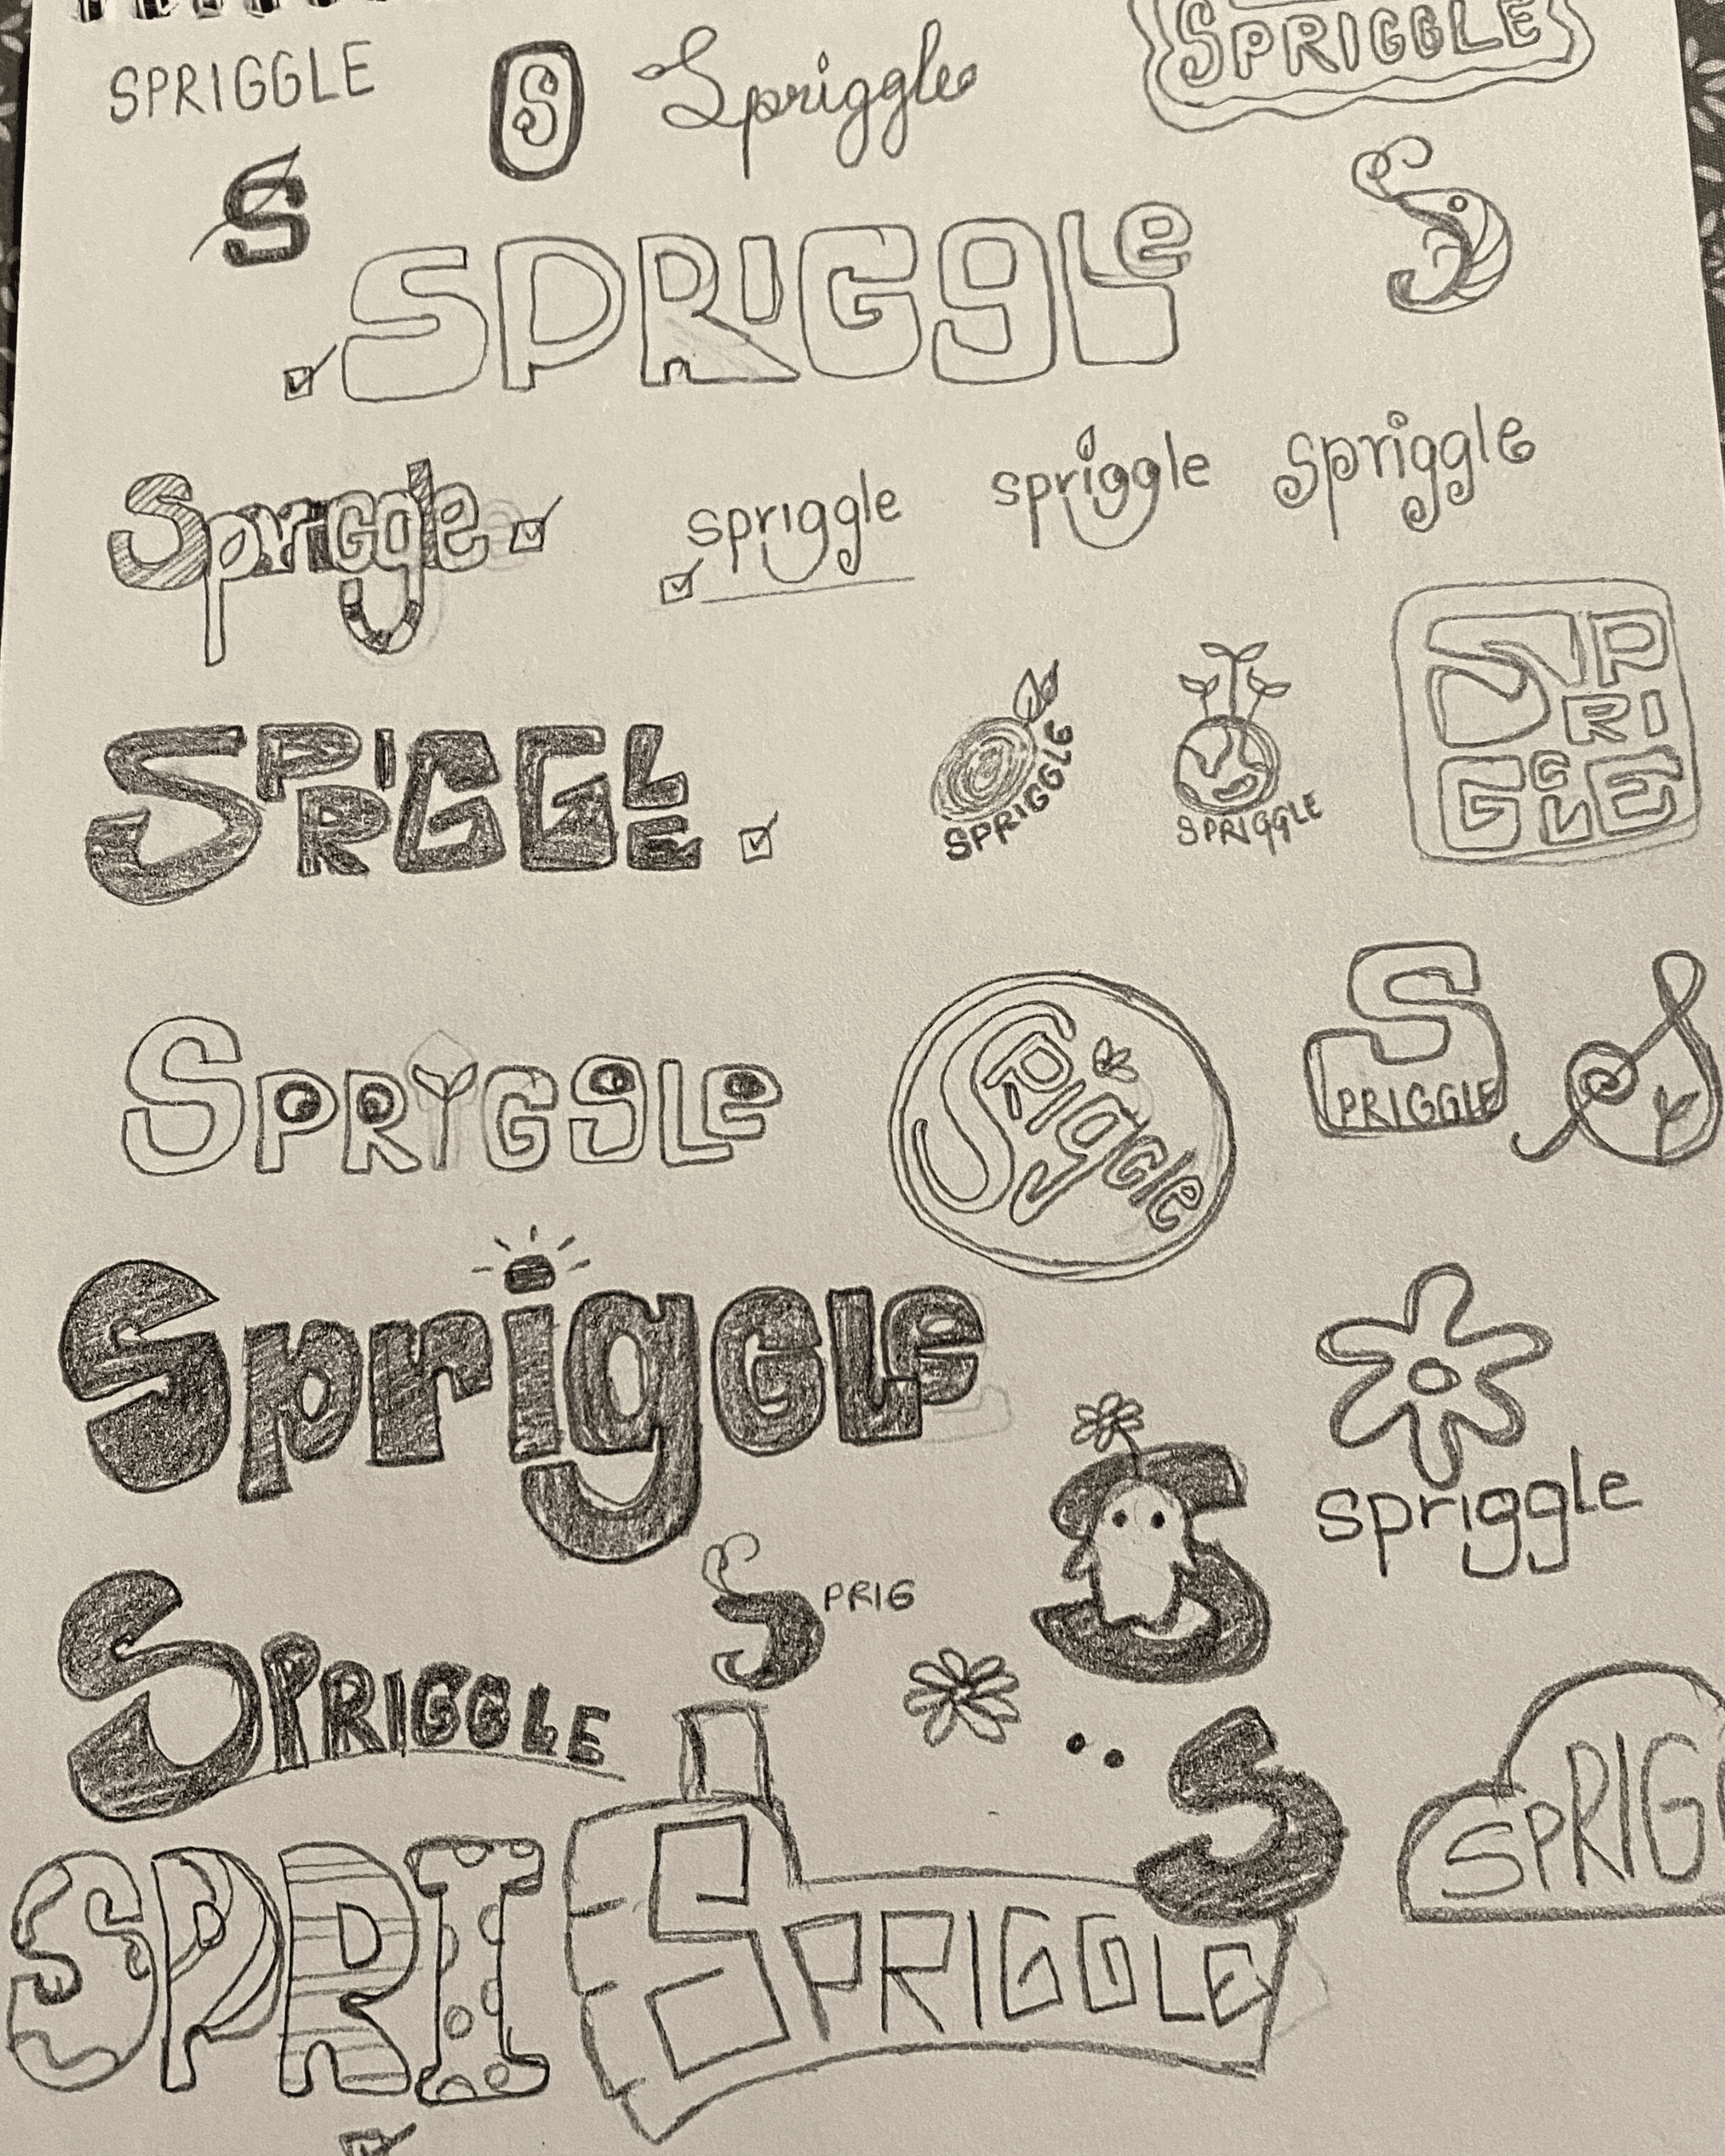 SPRIGGLE
S
Spriggle
SPRIGGLE
S
SPRIGGLe
S
Spriggle
spriggle
spriggle
spriggle
SPRIGGLE
SPRIGGLE
SPRIGGLE
SP
RI
GGLE
SPRIGGLe
Spriggle
S
PRIGGLE
S
SprigGLe
spriggle
S
PRIG
S
SPRIGGLE
S
SPRIG
SPRI
SPRIGGLE